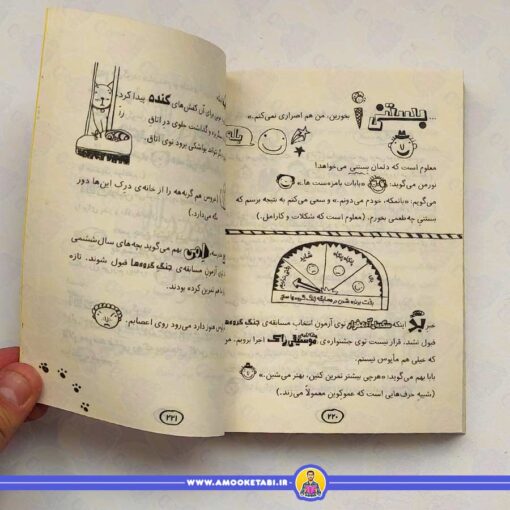 ...بستنی بخورین، من هم اصراری نمی‌کنم.»
بله
معلوم است که دلمان بستنی می‌خواهد!
نورمن می‌گوید: «بابات بامزه‌ست ها.»
می‌گویم: «بانمکه، خودم می‌دونم.» و سعی می‌کنم به نتیجه برسم که
بستنیِ چه‌طعمی بخورم. (معلوم است که شکلات و کارامل.)
شاید
خبر بد اینکه توی آزمون انتخاب مسابقه‌ی جنگ گروه‌ها
قبول نشد. قرار نیست توی جشنواره‌ی موسیقی راک اجرا برویم. من
که خیلی هم مأیوس نیستم.
بابا بهم می‌گوید: «هرچی بیشتر تمرین کنین، بهتر می‌شین.»
(شبیه حرف‌هایی است که عموکوین معمولاً می‌زند.)
۲۲۰
برای آن کفش‌های گنده پیدا کرد
و گذاشت جلوی در اتاق
برود توی اتاق
هم گربه‌ها را از خانه‌ی درک این‌ها دور
می‌دارد.)
امی بهم می‌گوید بچه‌های سال‌ششمی
آزمون مسابقه‌ی جنگ گروه‌ها قبول شدند. تازه
تمرین کرده بودند.
دارد می‌رود روی اعصابم.
۲۲۱
WWW.AMOOKETABI.IR